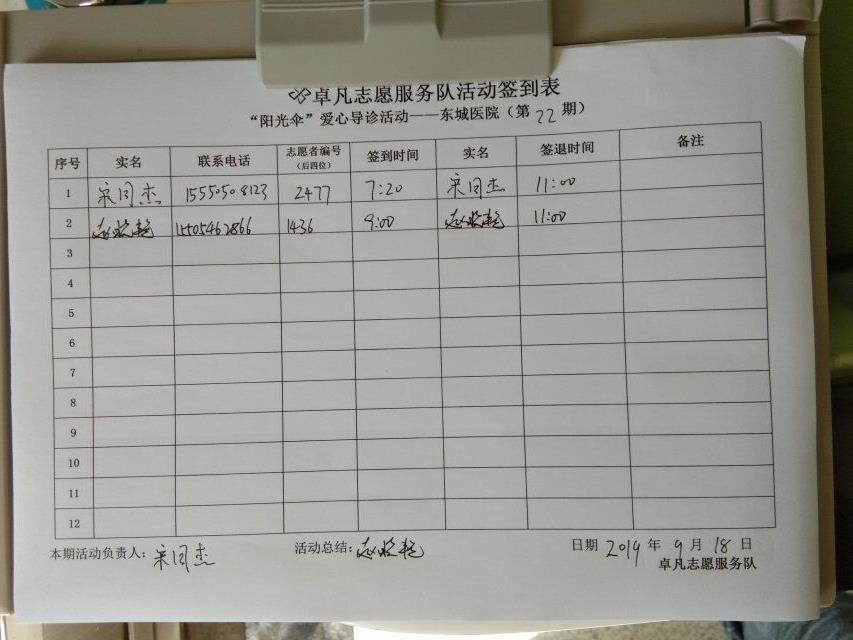 卓凡志愿服务队活动签到表
“阳光伞”爱心导诊活动——东城医院（第 22 期）
序号 实名 联系电话 志愿者编号（后四位） 签到时间 实名 签退时间 备注
1 宋同杰 15550508123 2477 7:20 宋同杰 11:00
2 赵 15505462866 1436 9:00 赵 11:00
3
4
5
6
7
8
9
10
11
12
本期活动负责人：宋同杰 活动总结：赵 日期 2019 年 9 月 18 日
卓凡志愿服务队